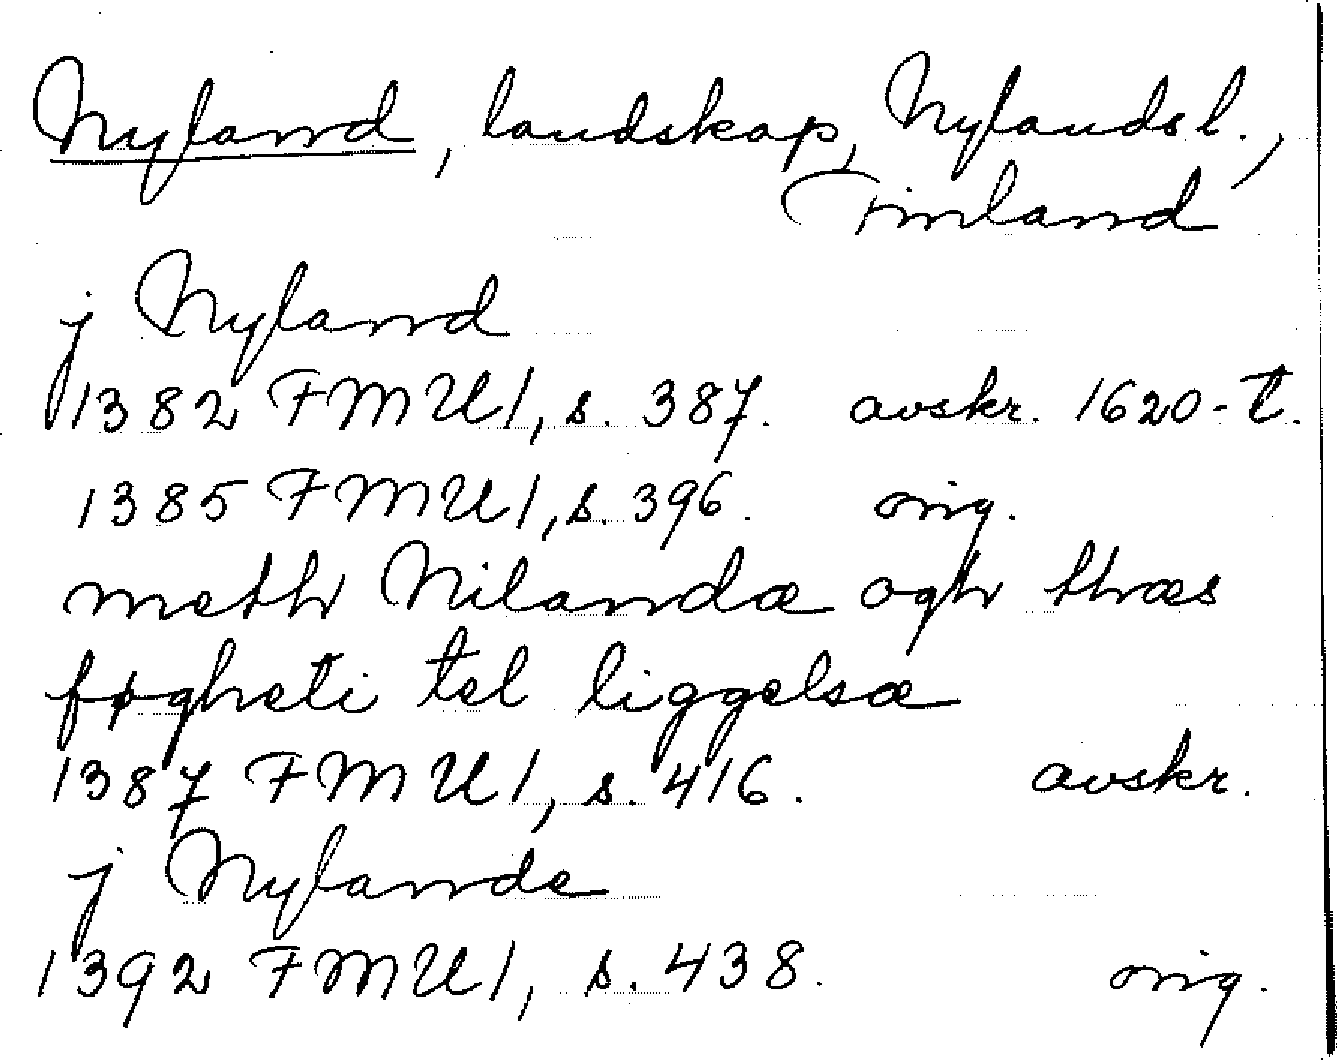 Nyland, landskap, Nylands l.,
Finland
j Nyland
1382 FMU 1, s. 387. avskr. 1620-t.
1385 FMU 1, s. 396. orig.
meth Nilandæ ogh thæs
føgheti tel liggelsæ
1387 FMU 1, s. 416. avskr.
j Nylande
1392 FMU 1, s. 438. orig.